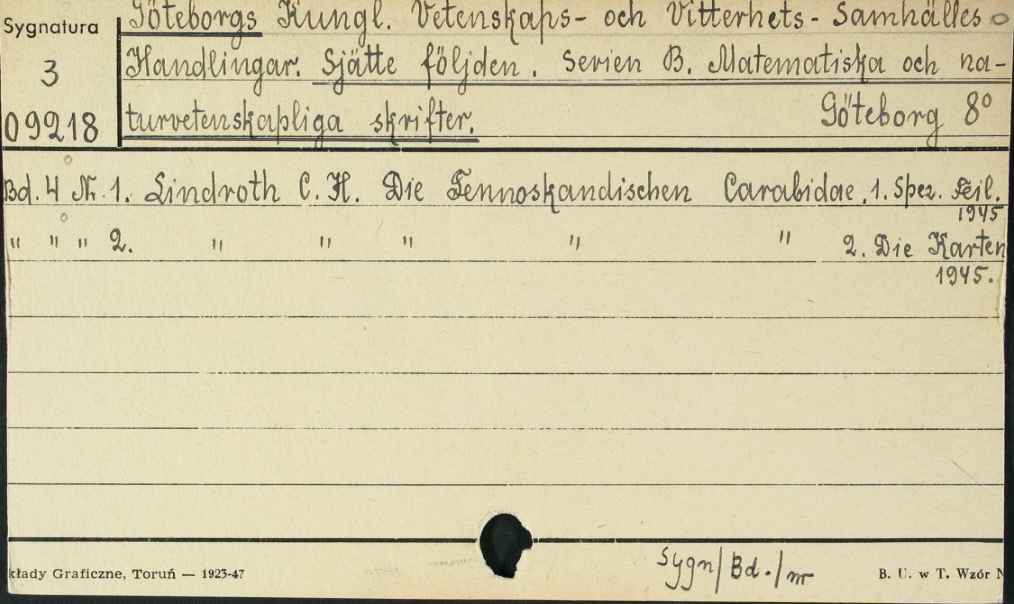 Sygnatura
3
09218
Göteborgs Kungl. Vetenskaps- och Vitterhets- Samhälles
Handlingar. Sjätte följden. Serien B. Matematiska och na-
turvetenskapliga skrifter. Göteborg 8°
Bd. 4 Nr. 1. Lindroth C. H. Die Fennoskandischen Carabidae, 1. Spez. Teil.
1945
" " " 2. " " " " " 2. Die Karten
1945.
kłady Graficzne, Toruń — 1925-47
Sygn/Bd./nr
B. U. w T. Wzór N